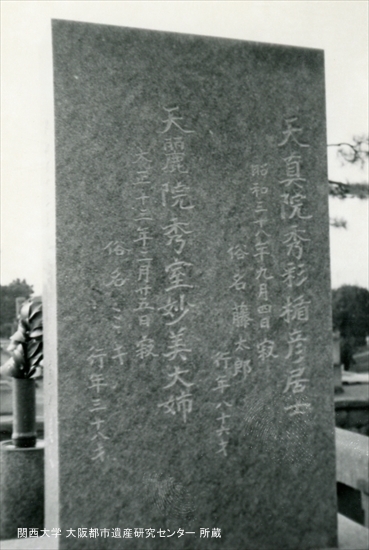 天真院秀彩楯彦居士
昭和三十八年九月四日寂
俗名 藤太郎
行年 八十六才
天麗院秀室妙美大姉
大正十三年二月廿五日寂
俗名 ミキ
行年 三十八才
関西大学 大阪都市遺産研究センター 所蔵